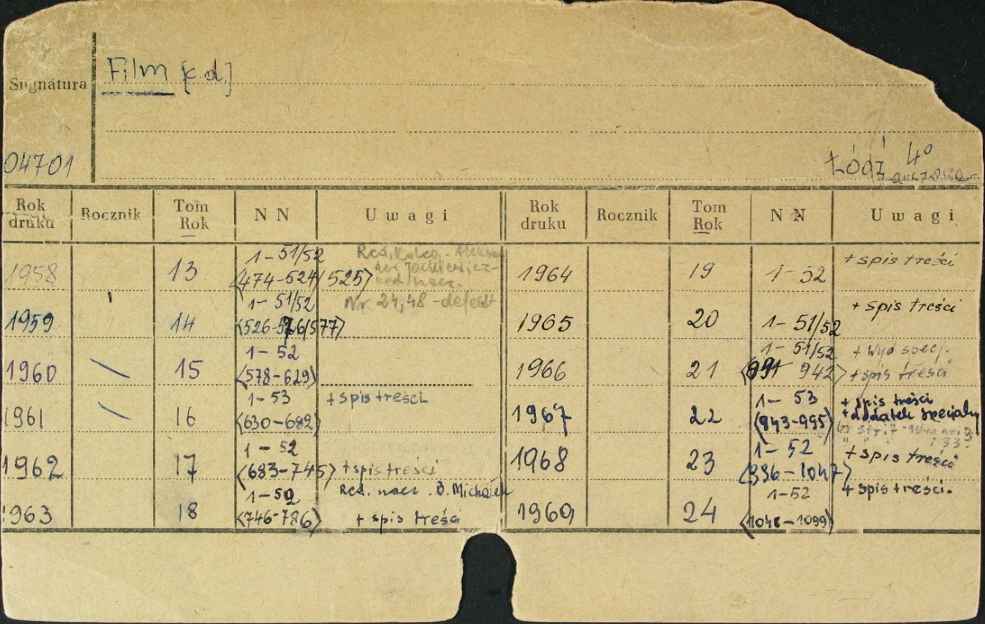 Film [c.d.]
Sygnatura
04701
Łódź 4°
Rok druku Rocznik Tom Rok NN Uwagi Rok druku Rocznik Tom Rok NN Uwagi
1958 13 1-51/52 <474-524/525> Nr 24,48-defekt
1959 14 1-51/52 <526-576/577>
1960 15 1-52 <578-629>
1961 16 1-53 <630-682> + spis treści
1962 17 1-52 <683-745> + spis treści
1963 18 1-52 <746-786> Red. nacz. B. Michałek + spis treści
1964 19 1-52 + spis treści
1965 20 1-51/52 + spis treści
1966 21 1-51/52 <891 942> + wyd. specj. + spis treści
1967 22 1-53 <943-995> + spis treści + dodatek specjalny
1968 23 1-52 <996-1047> + spis treści
1969 24 1-52 <1048-1099> + spis treści.